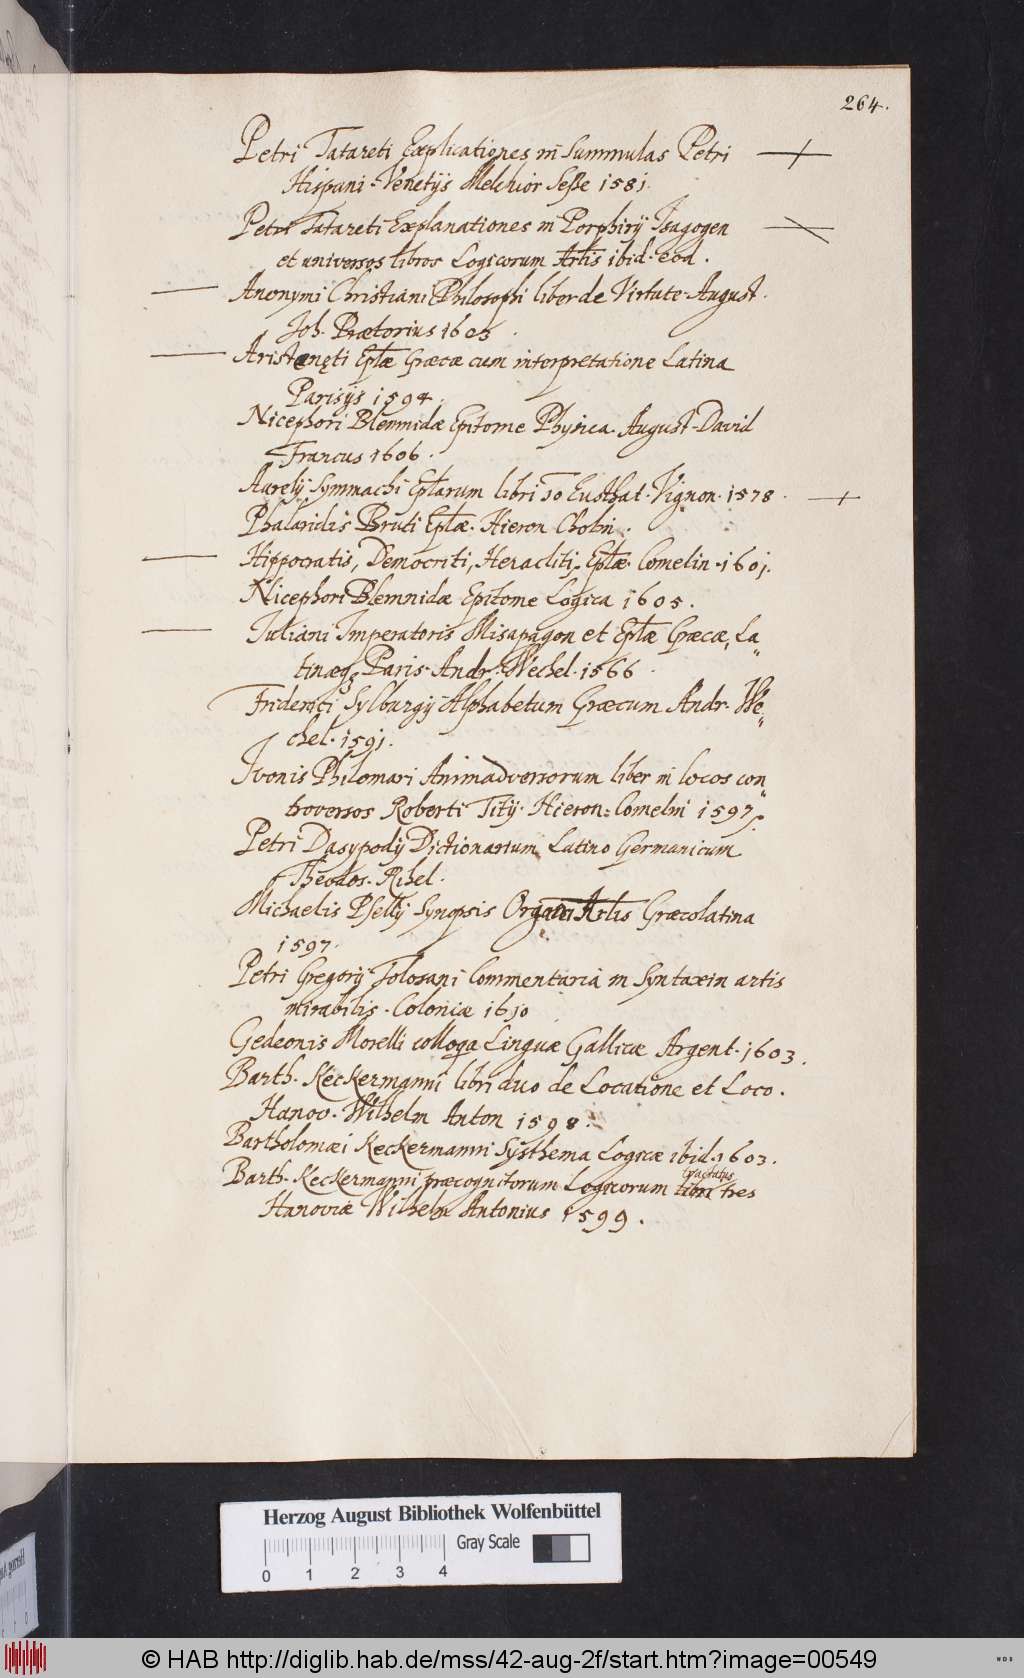 264.
Petri Tatareti Explicationes in Summulas Petri
Hispani. Venetijs Melchior Sesse 1581.
Petri Tatareti Explanationes in Porphirij Isagogen
et universos libros Logicorum Artis ibid. eod.
Anonymi Christiani Philosophi liber de Virtute. August.
Joh. Prætorius 1603.
Aristæneti Eptæ Græcæ cum interpretatione Latina
Parisijs 1594.
Nicephori Blemmidæ Epitome Physica. August. David
Francus 1606.
Aurelij Symmachi Eptarum libri 10 Eusthat. Vignon. 1578.
Phalaridis Bruti Eptæ. Hieron Cholin.
Hippocratis, Democriti, Heracliti, Eptæ. Comelin. 1601.
Nicephori Blemnidæ Epitome Logica 1605.
Juliani Imperatoris Misapagon et Eptæ Græcæ, La„
tinæq3 Paris. Andr. Wechel. 1566.
Friderici Sylburgij Alphabetum Græcum Andr. We„
chel. 1591.
Ivonis Philomari Animadversorum liber in locos con„
troversos Roberti Titij. Hieron: Comelin 1597.
Petri Dasypodij Dictionarium Latino Germanicum
Theodos. Rihel.
Michaelis Pselly Synopsis Organi Artis Græcolatina
1597.
Petri Gregorij Tolosani Commentaria in Syntaxin artis
mirabilis. Coloniæ 1610
Gedeonis Morelli colloqa Linguæ Gallicæ Argent. 1603.
Barth. Keckermanni libri duo de Locatione et Loco.
Hanov. Wilhelm Anton 1598.
Bartholomæi Keckermanni Systhema Logicæ ibid. 1603.
Barth. Keckermanni præcognitorum Logicorum libri tractatus tres
Hanoviæ Wilhelm Antonius 1599.
Herzog August Bibliothek Wolfenbüttel
Gray Scale
0 1 2 3 4
© HAB http://diglib.hab.de/mss/42-aug-2f/start.htm?image=00549